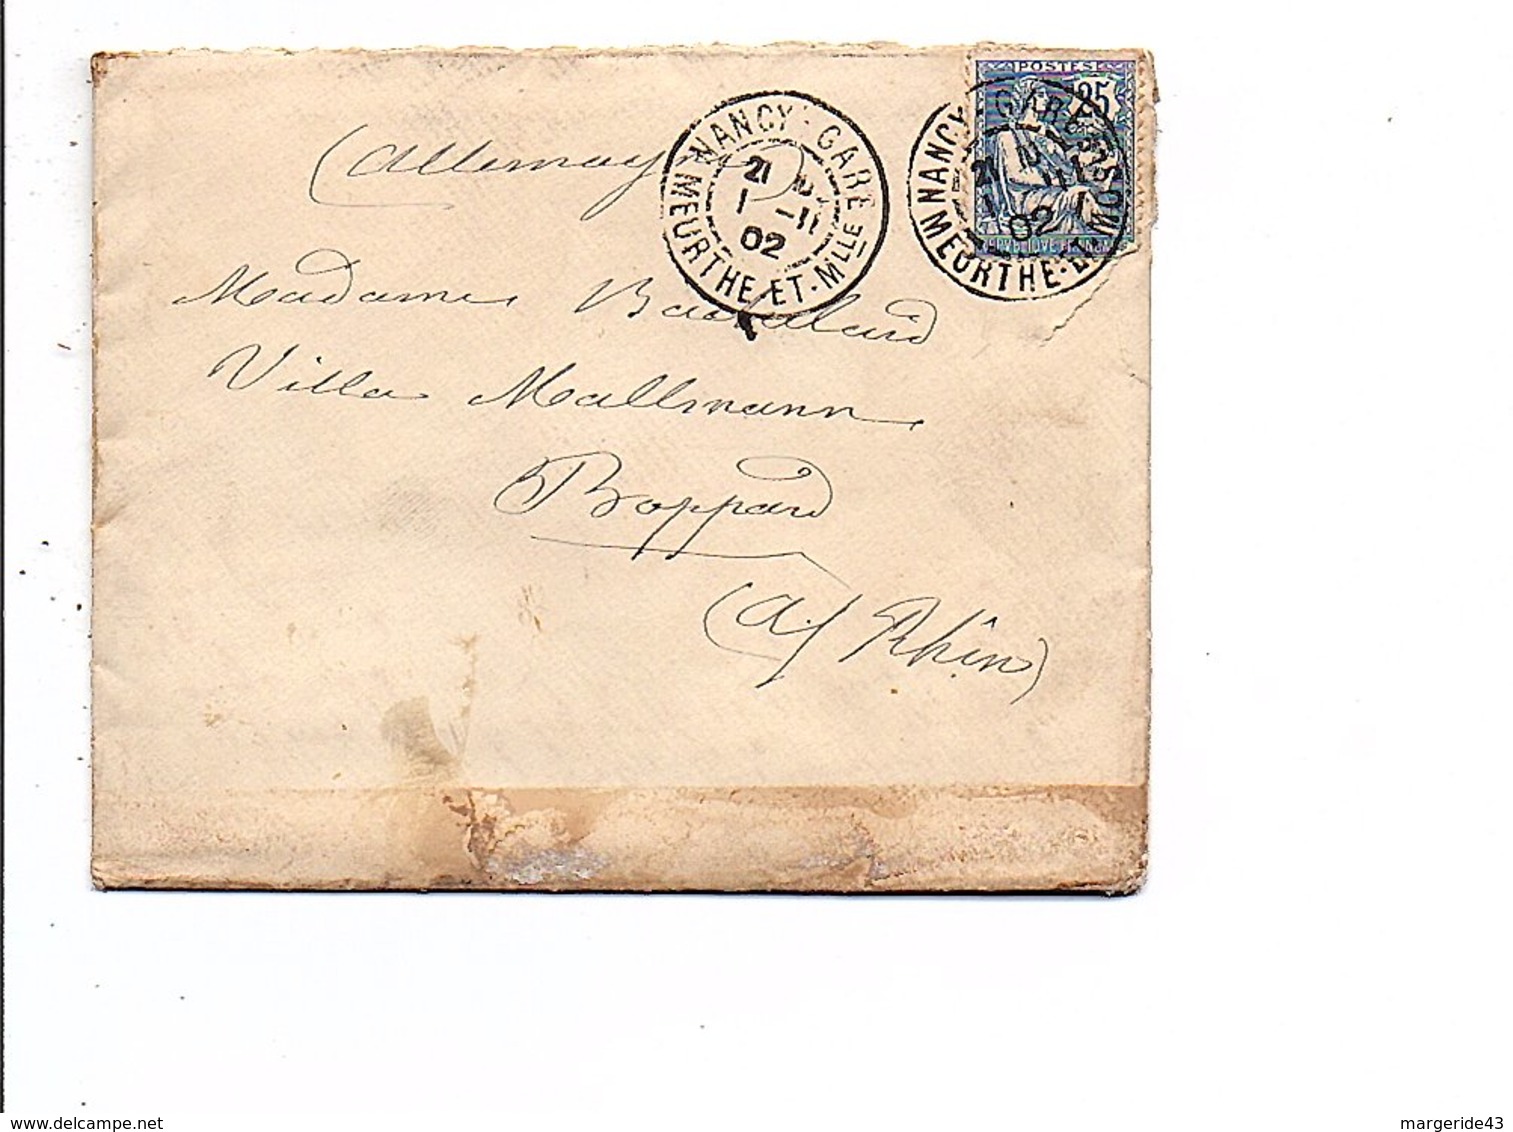 POSTES
25
REPUBLIQUE FRANCAISE
NANCY - GARE
21
1 -11
02
MEURTHE-ET-Mlle
NANCY - GARE
21
1 -11
02
MEURTHE-ET-M
(Allemagne)
Madame Bachelard
Villa Mallmann
Boppard
(a/ Rhin)
delcampe.net
margeride43